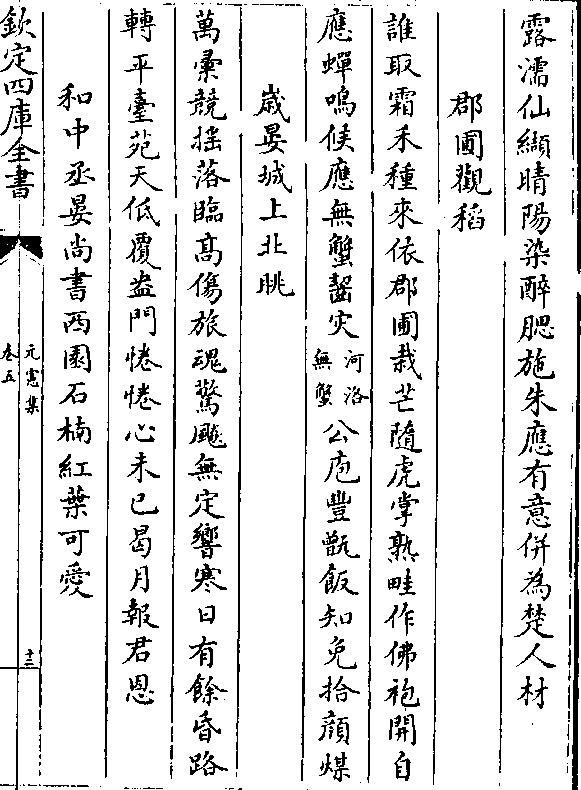 露濡仙纈晴陽染醉腮施朱應有意併為楚人材
郡圃觀稻
誰取霜禾種來依郡圃栽芒隨虎掌熟畦作佛袍開自
應蟬鳴候應無蟹齧灾河洛無蟹公庖豐甑飯知免拾顔煤
嵗晏城上北眺
萬彚競揺落臨髙傷旅魂驚飈無定響寒日有餘昏路
轉平臺苑天低覆盎門惓惓心未已曷月報君恩
和中丞晏尚書西園石楠紅葉可愛
欽定四庫全書
元憲集
卷五
十二